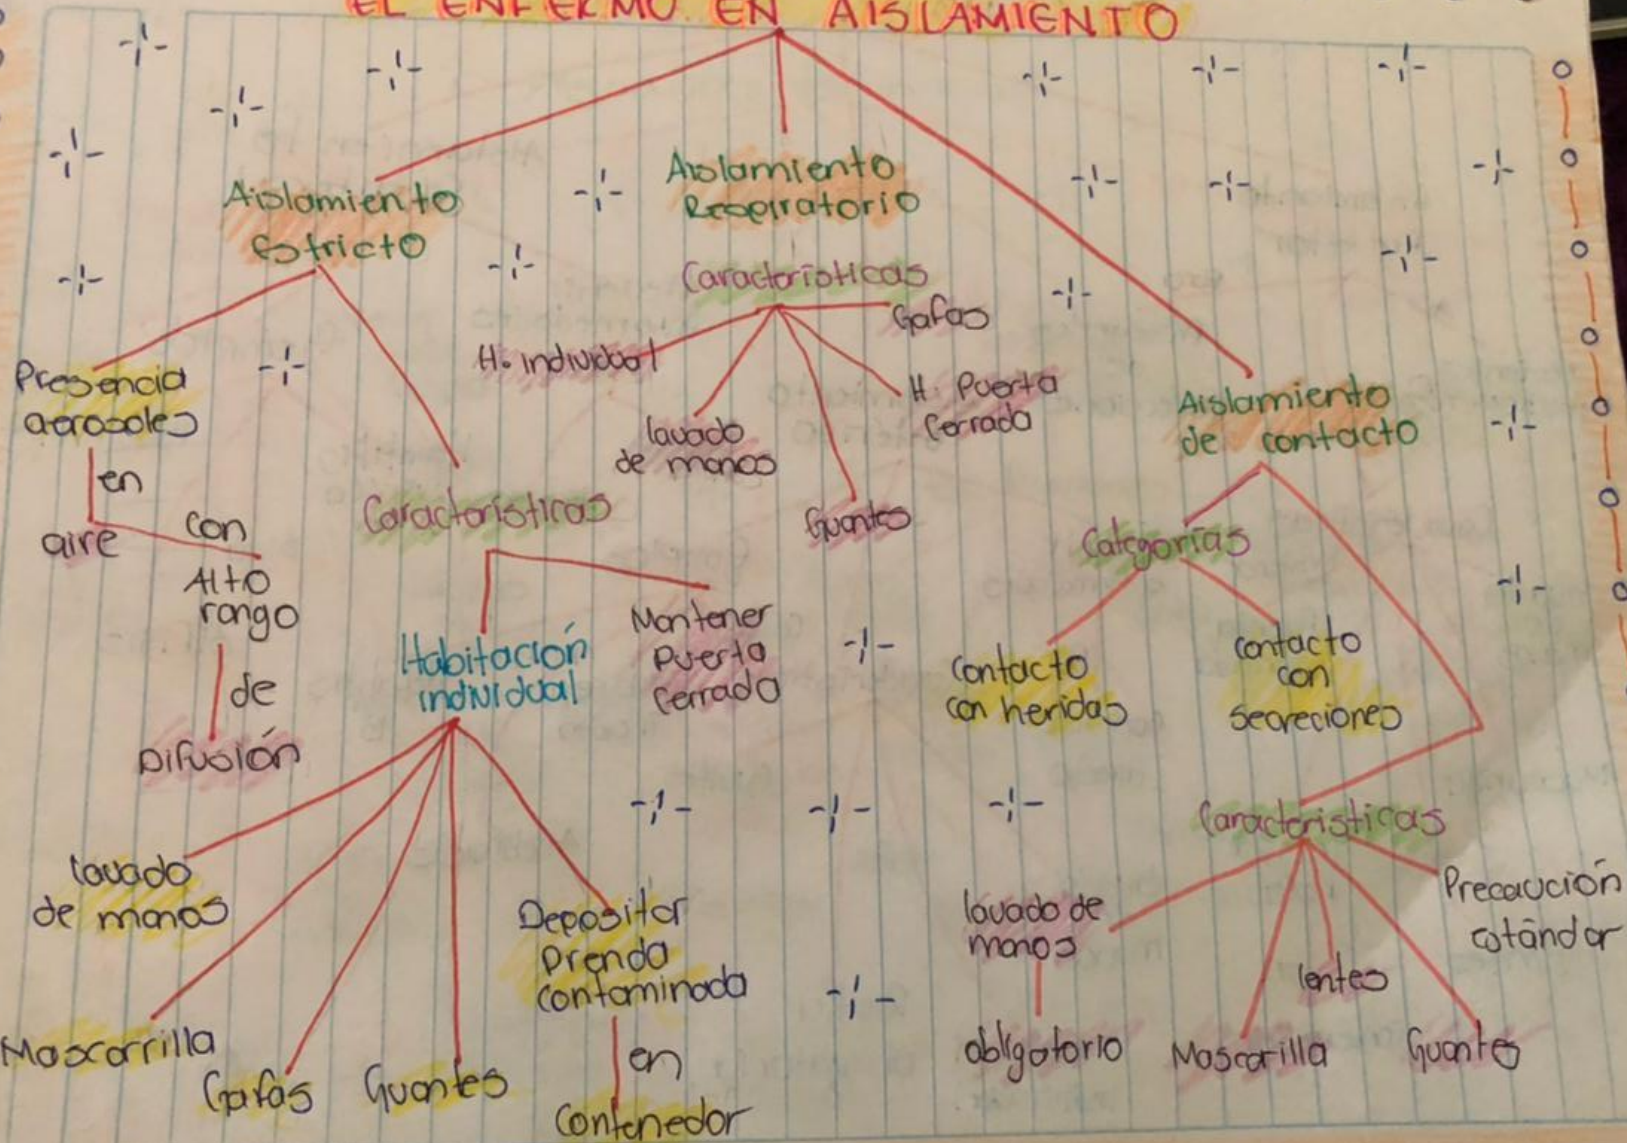 EL ENFERMO EN AISLAMIENTO
Aislamiento
Estricto
Presencia
aerosoles
en
aire
con
Alto
rango
de
Difusión
Características
Habitación
individual
Mantener
Puerta
Cerrada
lavado
de manos
Mascarrilla
Gafas
Guantes
Depositar
Prenda
contaminada
en
Contenedor
Aislamiento
Respiratorio
Características
H. individual
lavado
de manos
Guantes
H. Puerta
Cerrada
Gafas
Aislamiento
de contacto
Categorías
Contacto
con heridas
contacto
con
secreciones
Características
lavado de
manos
obligatorio
Mascarilla
lentes
Guantes
Precaución
estándar